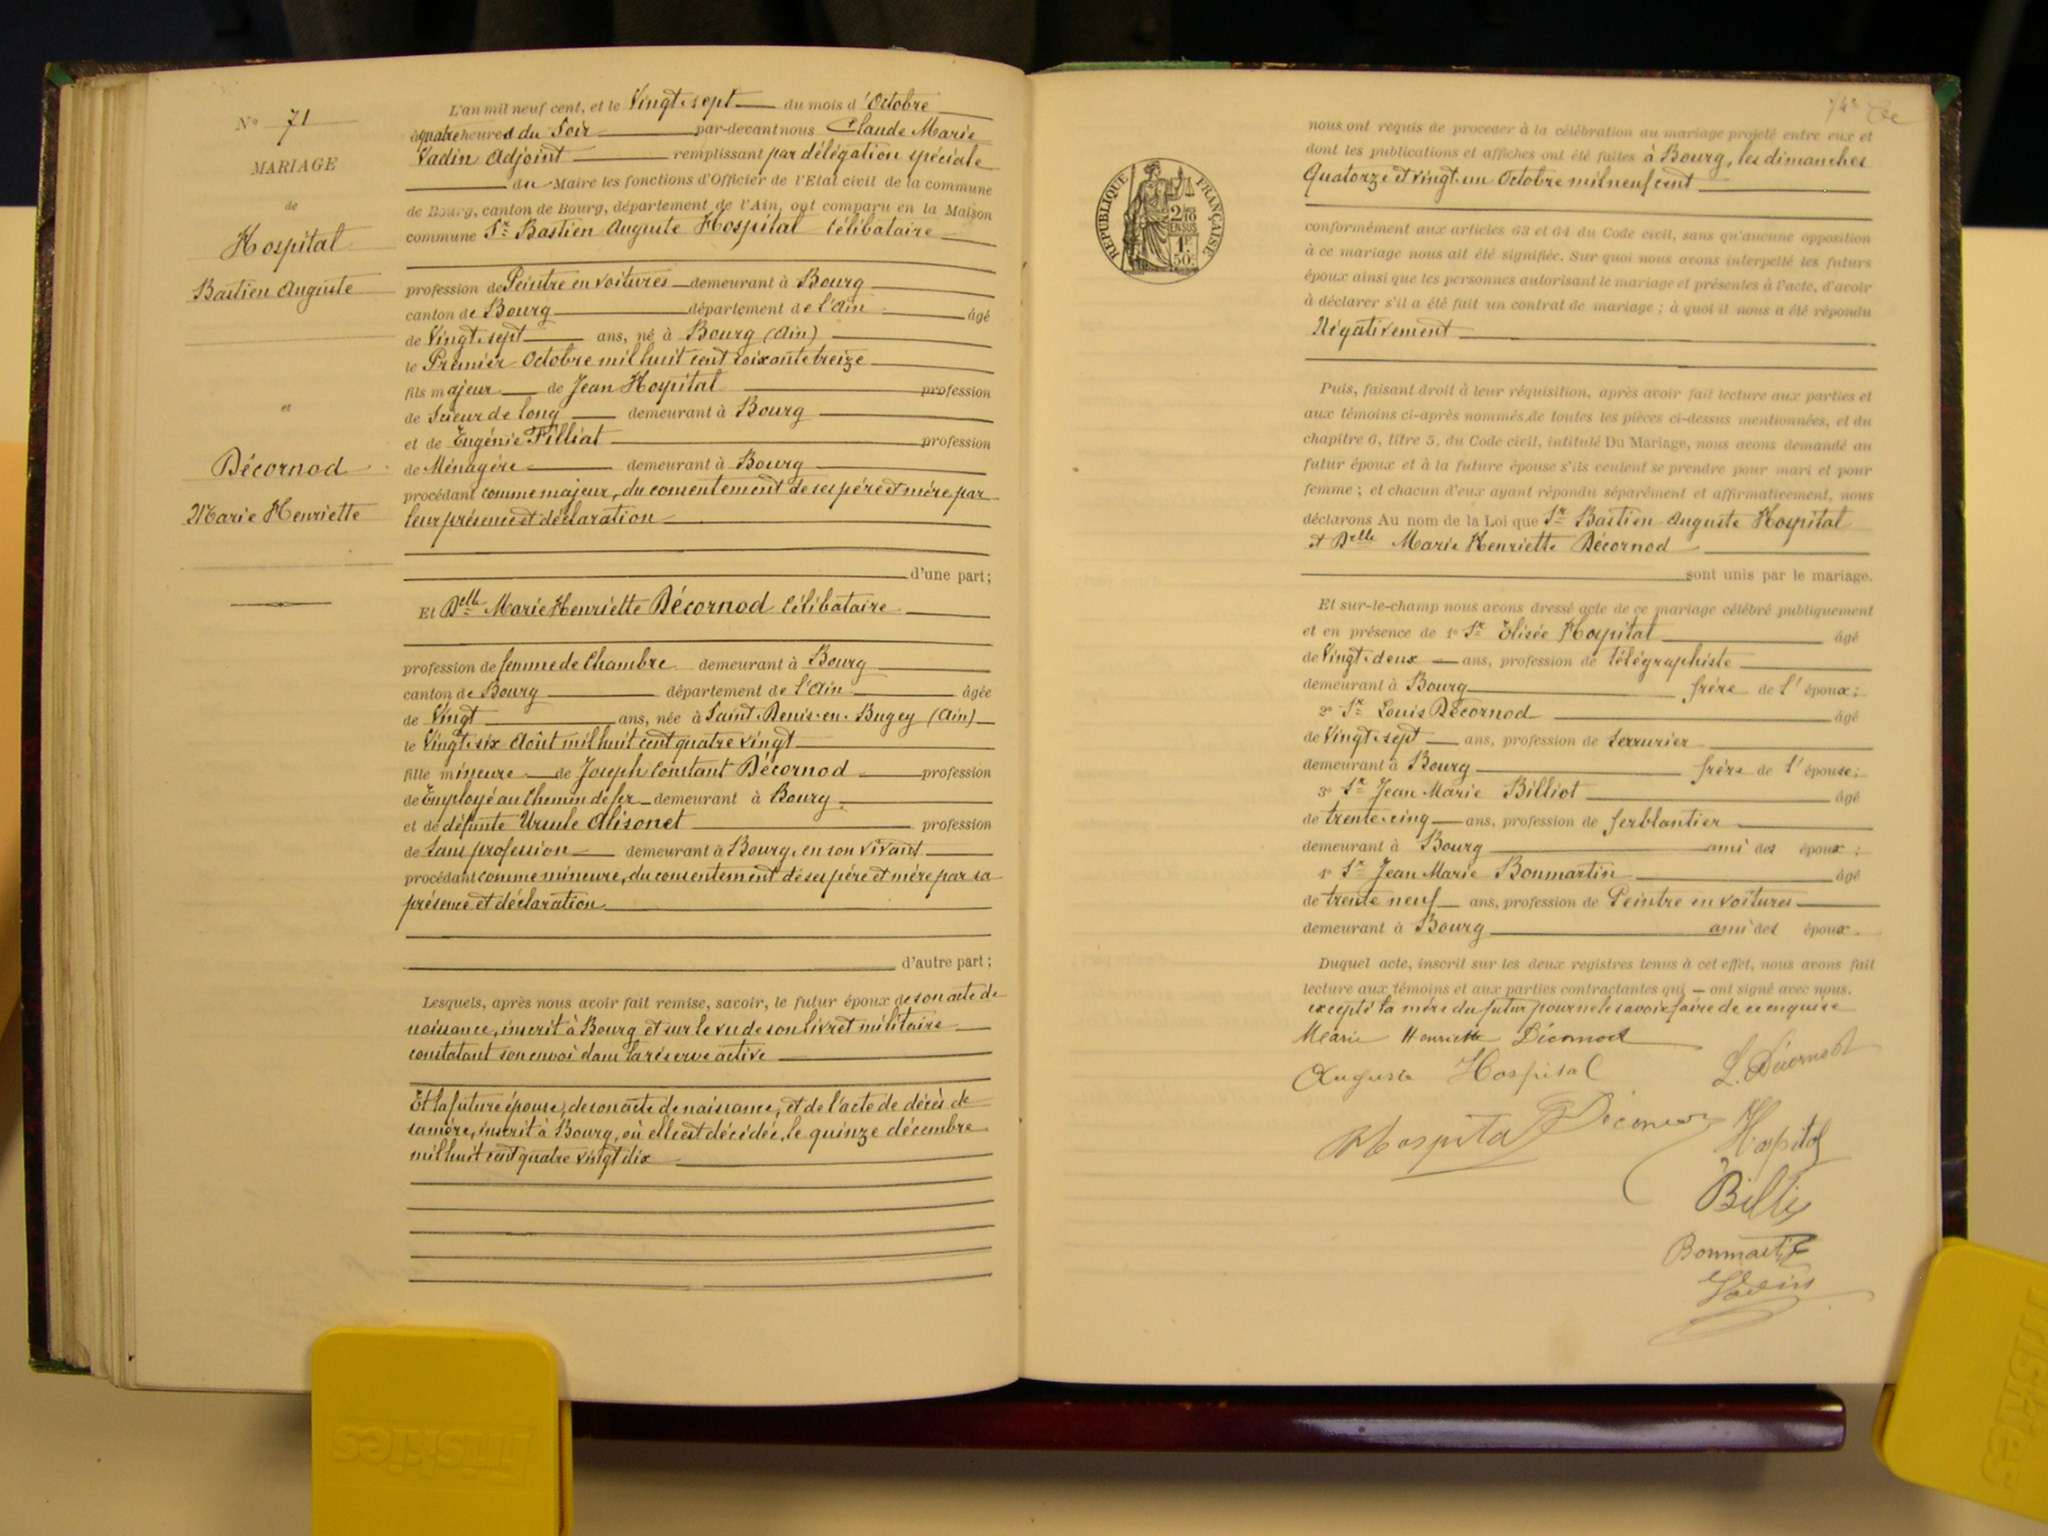 N° 71
MARIAGE
de
Hospital
Bastien Auguste
et
Décornod
Marie Henriette
L'an mil neuf cent, et le Vingt-sept du mois d'Octobre
à quatre heures du Soir par-devant nous Claude Marie
Vadin Adjoint remplissant par délégation spéciale
du Maire les fonctions d'Officier de l'Etat civil de la commune
de Bourg, canton de Bourg, département de l'Ain, ont comparu en la Maison
commune Sr Bastien Auguste Hospital Célibataire
profession de Peintre en voitures demeurant à Bourg
canton de Bourg département de l'Ain âgé
de Vingt-sept ans, né à Bourg (Ain)
le Premier Octobre mil huit cent soixante treize
fils majeur de Jean Hospital profession
de Scieur de long demeurant à Bourg
et de Eugénie Filliat profession
de Ménagère demeurant à Bourg
procédant comme majeur, du consentement de ses père et mère par
leur présence et déclaration
d'une part;
Et Delle Marie Henriette Décornod Célibataire
profession de femme de Chambre demeurant à Bourg
canton de Bourg département de l'Ain âgée
de Vingt ans, née à Saint-Denis-en-Bugey (Ain)
le Vingt-six Août mil huit cent quatre vingt
fille mineure de Joseph Constant Décornod profession
de Employé au Chemin de fer demeurant à Bourg
et de défunte Ursule Alisonet profession
de Sans profession demeurant à Bourg, en son vivant
procédant comme mineure, du consentement de ses père et mère par sa
présence et déclaration
d'autre part;
Lesquels, après nous avoir fait remise, savoir, le futur époux de son acte de
naissance, inscrit à Bourg et sur le vu de son livret militaire
constatant son envoi dans la réserve active
Et la future épouse, de son acte de naissance, et de l'acte de décès de
sa mère, inscrit à Bourg, où elle est décédée, le quinze décembre
mil huit cent quatre vingt dix
REPUBLIQUE FRANÇAISE
2/10
EN SUS
1F
50c
nous ont requis de procéder à la célébration du mariage projeté entre eux et
dont les publications et affiches ont été faites à Bourg, les dimanches
Quatorze et vingt-un Octobre mil neuf cent
conformément aux articles 63 et 64 du Code civil, sans qu'aucune opposition
à ce mariage nous ait été signifiée. Sur quoi nous avons interpellé les futurs
époux ainsi que les personnes autorisant le mariage et présentes à l'acte, d'avoir
à déclarer s'il a été fait un contrat de mariage; à quoi il nous a été répondu
Négativement
Puis, faisant droit à leur réquisition, après avoir fait lecture aux parties et
aux témoins ci-après nommés, de toutes les pièces ci-dessus mentionnées, et du
chapitre 6, titre 5, du Code civil, intitulé Du Mariage, nous avons demandé au
futur époux et à la future épouse s'ils veulent se prendre pour mari et pour
femme; et chacun d'eux ayant répondu séparément et affirmativement, nous
déclarons Au nom de la Loi que Sr Bastien Auguste Hospital
et Delle Marie Henriette Décornod
sont unis par le mariage.
Et sur-le-champ nous avons dressé acte de ce mariage célébré publiquement
et en présence de 1° Sr Elisée Hospital âgé
de Vingt-deux ans, profession de télégraphiste
demeurant à Bourg frère de l'époux;
2° Sr Louis Décornod âgé
de Vingt-sept ans, profession de serrurier
demeurant à Bourg frère de l'épouse;
3° Sr Jean Marie Billiot âgé
de trente-cinq ans, profession de ferblantier
demeurant à Bourg ami des époux;
4° Sr Jean Marie Bonmartin âgé
de trente neuf ans, profession de Peintre en voitures
demeurant à Bourg ami des époux.
Duquel acte, inscrit sur les deux registres tenus à cet effet, nous avons fait
lecture aux témoins et aux parties contractantes qui ont signé avec nous.
excepté la mère du futur pour ne le savoir faire de ce enquise
Marie Henriette Décornod
Auguste Hospital
L. Décornod
Hospital
Hospital
Bonmartin
Vadin
friskies
friskies